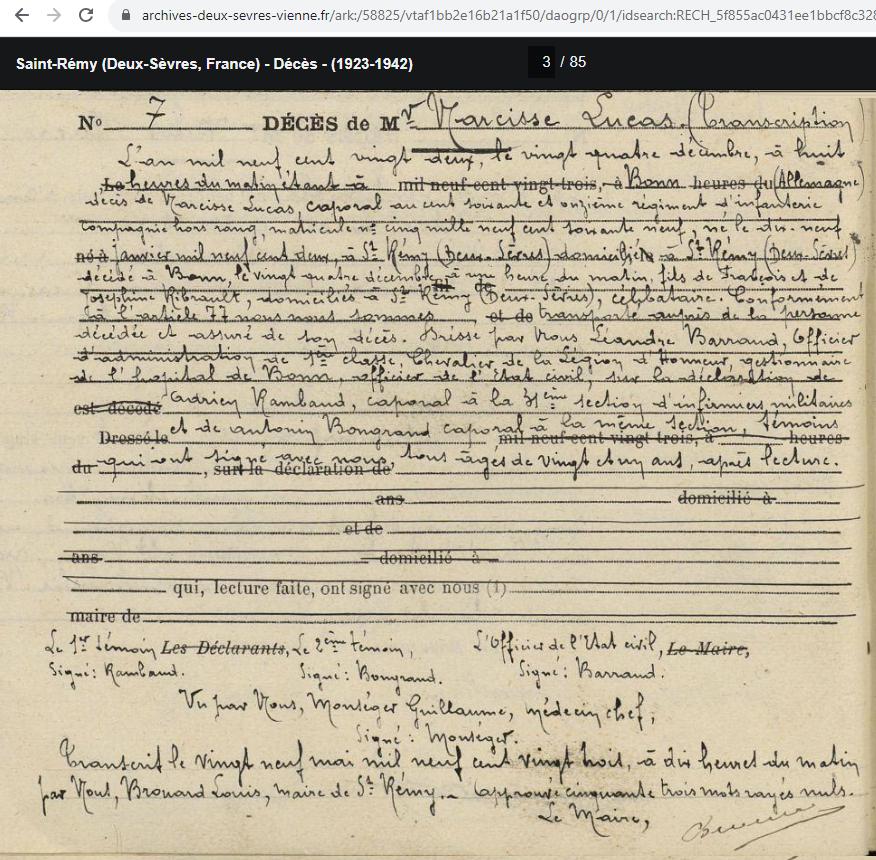 archives-deux-sevres-vienne.fr/ark:/58825/vtaf1bb2e16b21a1f50/daogrp/0/1/idsearch:RECH_5f855ac0431ee1bbcf8c328
Saint-Rémy (Deux-Sèvres, France) - Décès - (1923-1942) 3 / 85
No 7 DÉCÈS de Mr Narcisse Lucas. (Transcription)
L'an mil neuf cent vingt deux, le vingt quatre décembre, à huit
Le heures du matin étant à mil neuf cent vingt-trois, à Bonn heures du (Allemagne)
décès de Narcisse Lucas, caporal au cent soixante et onzième régiment d'infanterie
compagnie hors rang, matricule no cinq mille neuf cent soixante neuf, né le dix-neuf
né à janvier mil neuf cent deux, à St Rémy (Deux-Sèvres) domicilié à St Rémy (Deux-Sèvres)
décédé à Bonn, le vingt quatre décembre, à une heure du matin, fils de François et de
Joséphine Ribrault, domiciliés à St Rémy (Deux-Sèvres), célibataire. Conformément
à l'article 77 nous nous sommes et de transporté auprès de la personne
décédée et assuré de son décès. Dressé par Nous Léandre Barraud, Officier
d'administration de 1ère classe, Chevalier de la Légion d'Honneur, gestionnaire
de l'hopital de Bonn, officier de l'Etat civil, sur la déclaration de
est décédé Adrien Rambaud, caporal à la 31ème section d'infirmiers militaires
Dressé le et de antonin Bongrand caporal à la même section, témoins mil neuf cent vingt trois, à heures
du qui ont signé avec nous, sur la déclaration de tous âgés de vingt et un ans, après lecture.
ans domicilié à
et de
ans domicilié à
qui, lecture faite, ont signé avec nous (1)
maire de
Le 1er témoin Les Déclarants, Le 2ème témoin, L'Officier de l'Etat civil, Le Maire,
Signé: Rambaud. Signé: Bongrand. Signé: Barraud.
Vu par Nous, Monséger Guillaume, médecin chef,
Signé: Monséger.
Transcrit le vingt neuf mai mil neuf cent vingt trois, à dix heures du matin
par Nous, Brouard Louis, maire de St Rémy. approuvé cinquante trois mots rayés nuls.
Le Maire,